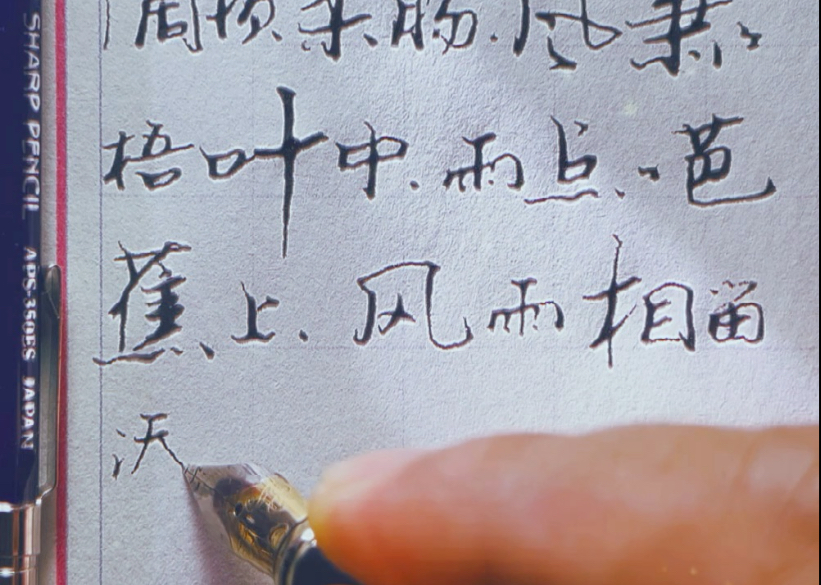 SHARP PENCIL APS-350ES JAPAN
损柔肠.风兼
梧叶中.雨点、芭
蕉上.风雨相留